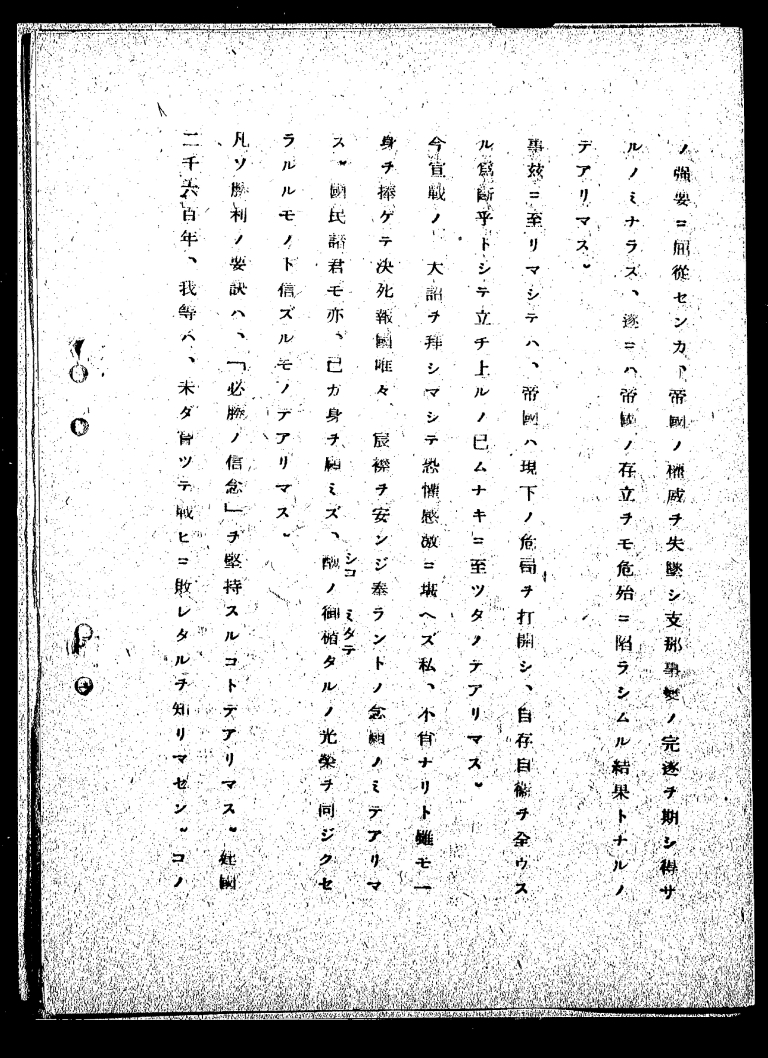 ノ強要ニ屈從センカ、帝國ノ權威ヲ失墜シ支那事變ノ完遂ヲ期シ得サ
ルノミナラス、遂ニハ帝國ノ存立ヲモ危殆ニ陷ラシムル結果トナルノ
デアリマス。
事玆ニ至リマシテハ、帝國ハ現下ノ危局ヲ打開シ、自存自衞ヲ全ウス
ル爲斷乎トシテ立チ上ルノ已ムナキニ至ツタノデアリマス。
今宣戰ノ大詔ヲ拜シマシテ恐懼感激ニ堪ヘズ私、不肖ナリト雖モ一
身ヲ捧ゲテ決死報國唯々宸襟ヲ安ンジ奉ラントノ念願ノミデアリマ
ス。國民諸君モ亦、己ガ身ヲ顧ミズ、醜ノ御楯タルノ光榮ヲ同ジクセ
シコ ミタテ
ラルルモノト信ズルモノデアリマス。
凡ソ勝利ノ要訣ハ、「必勝ノ信念」ヲ堅持スルコトデアリマス。建國
二千六百年、我等ハ、未ダ曾ツテ戰ヒニ敗レタルヲ知リマセン。コノ